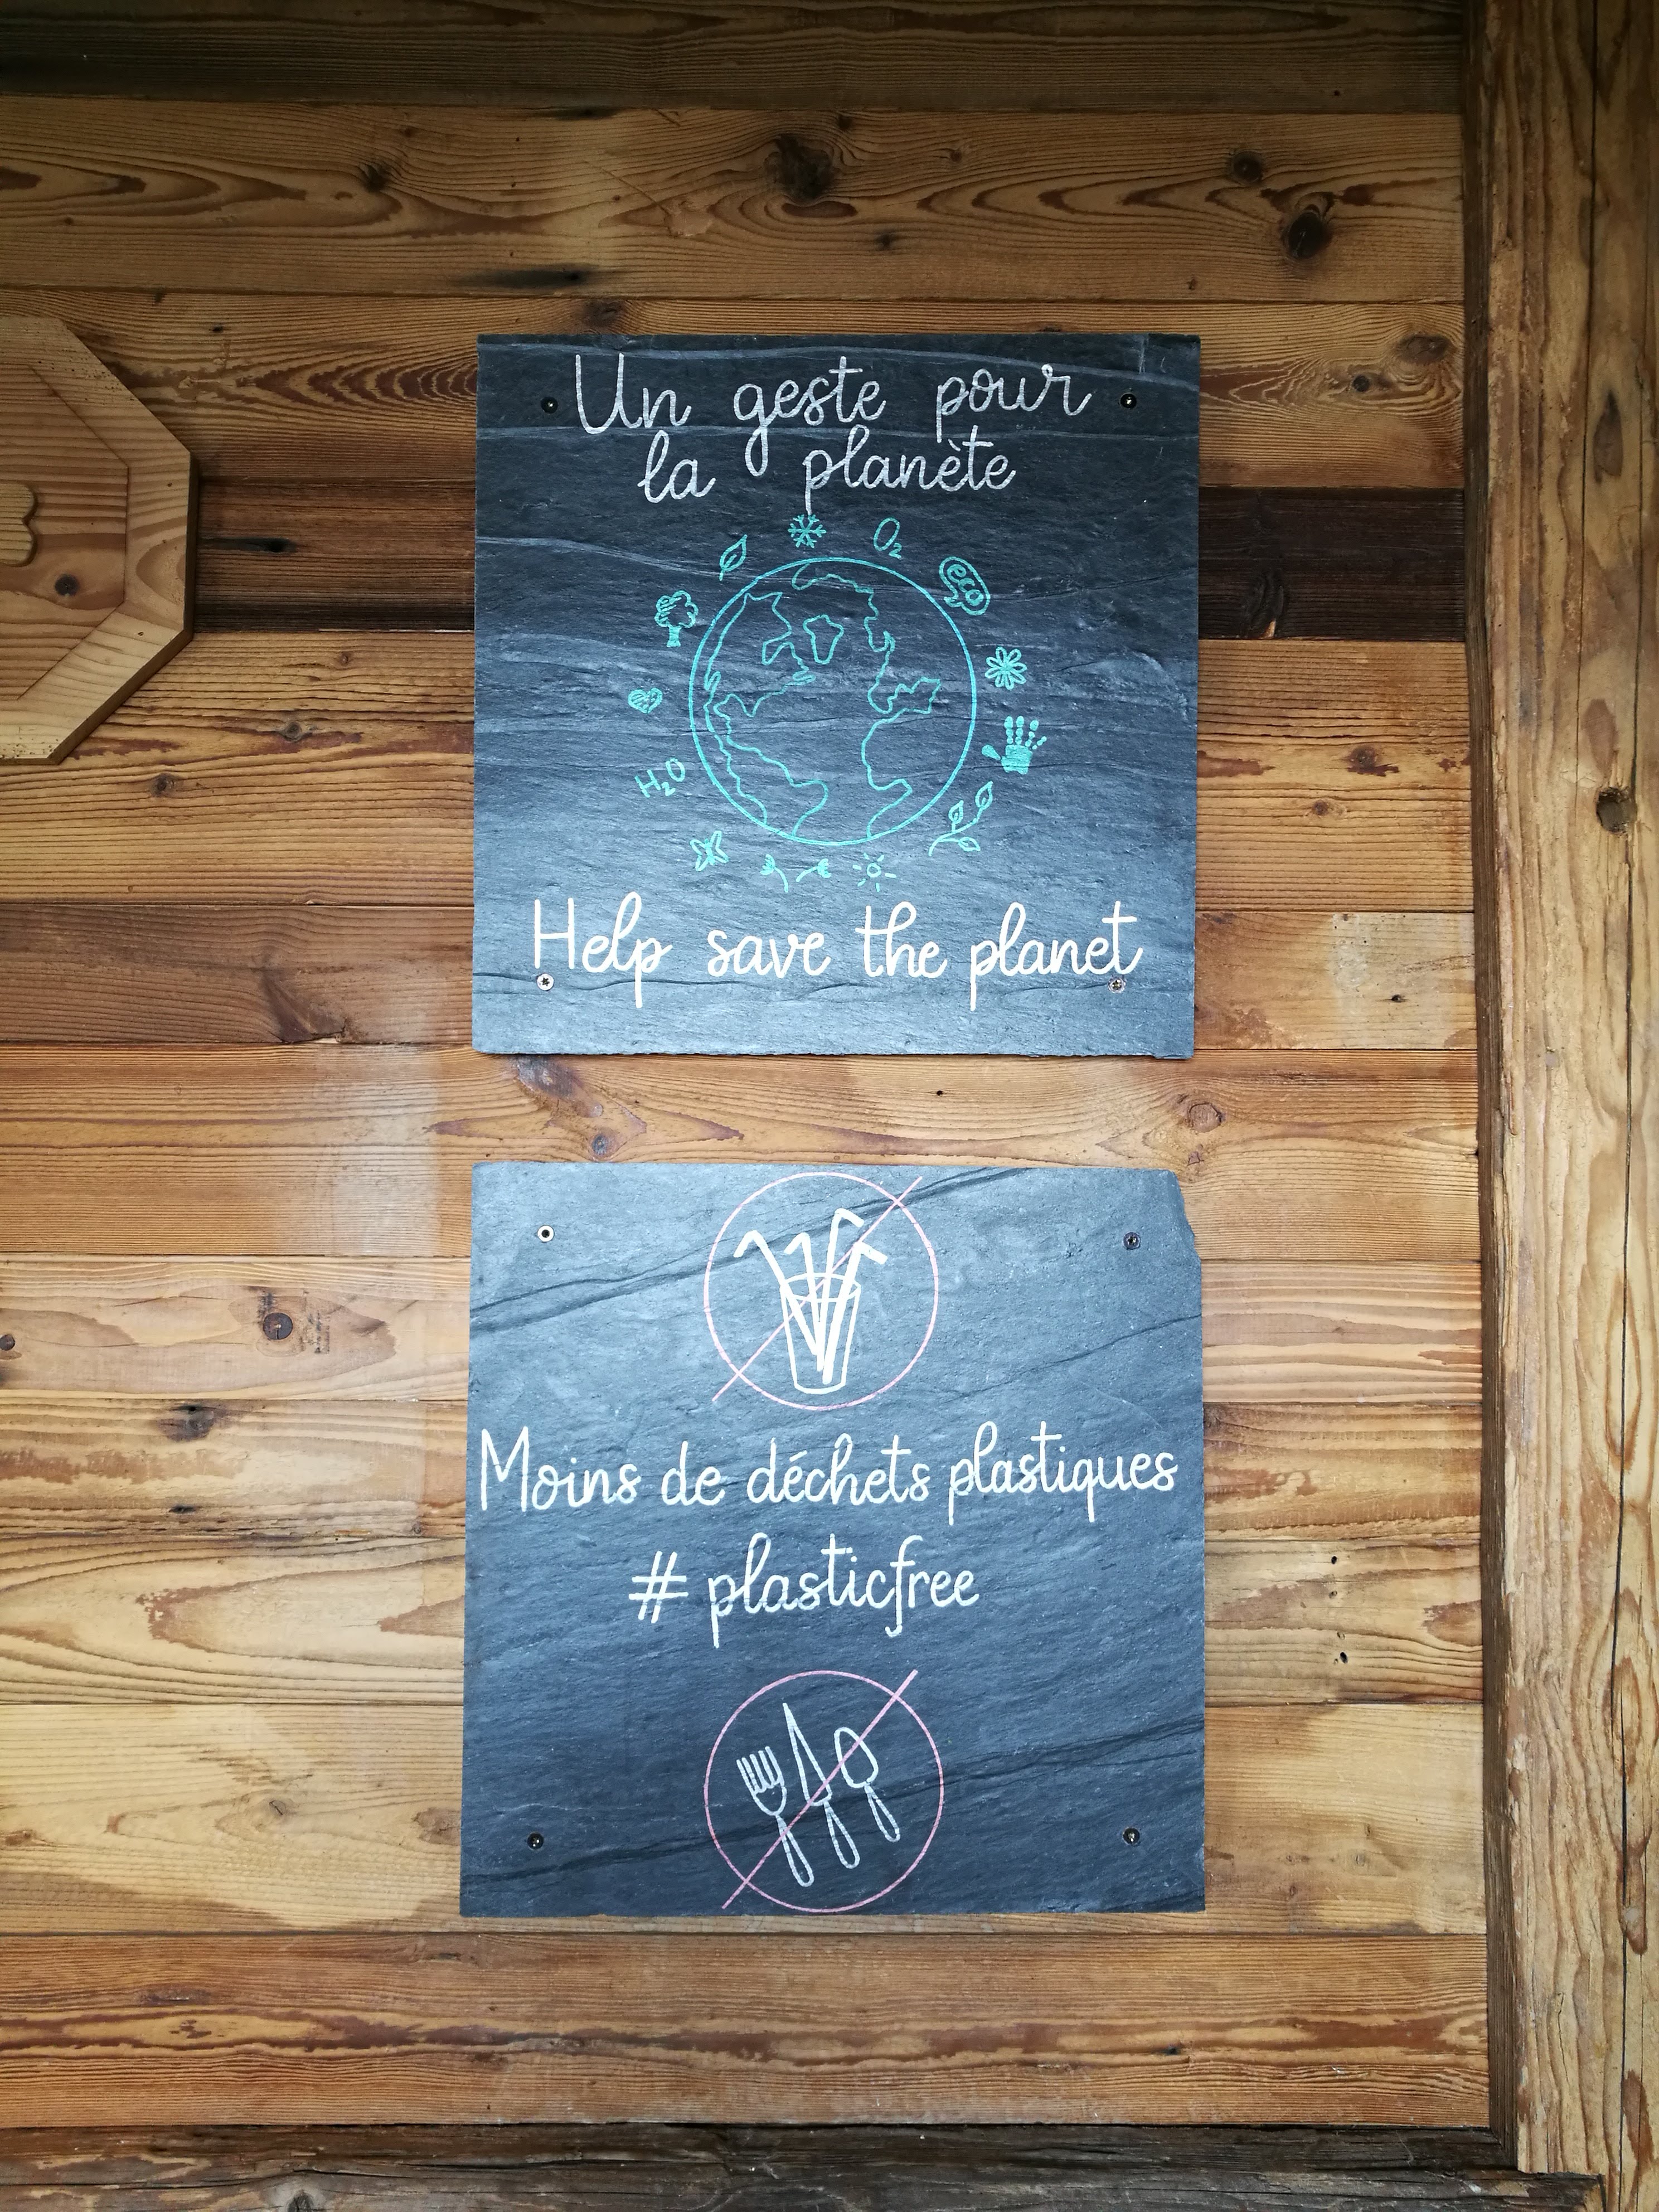 Un geste pour
la planète
O₂
eco
H₂O
Help save the planet
Moins de déchets plastiques
# plasticfree